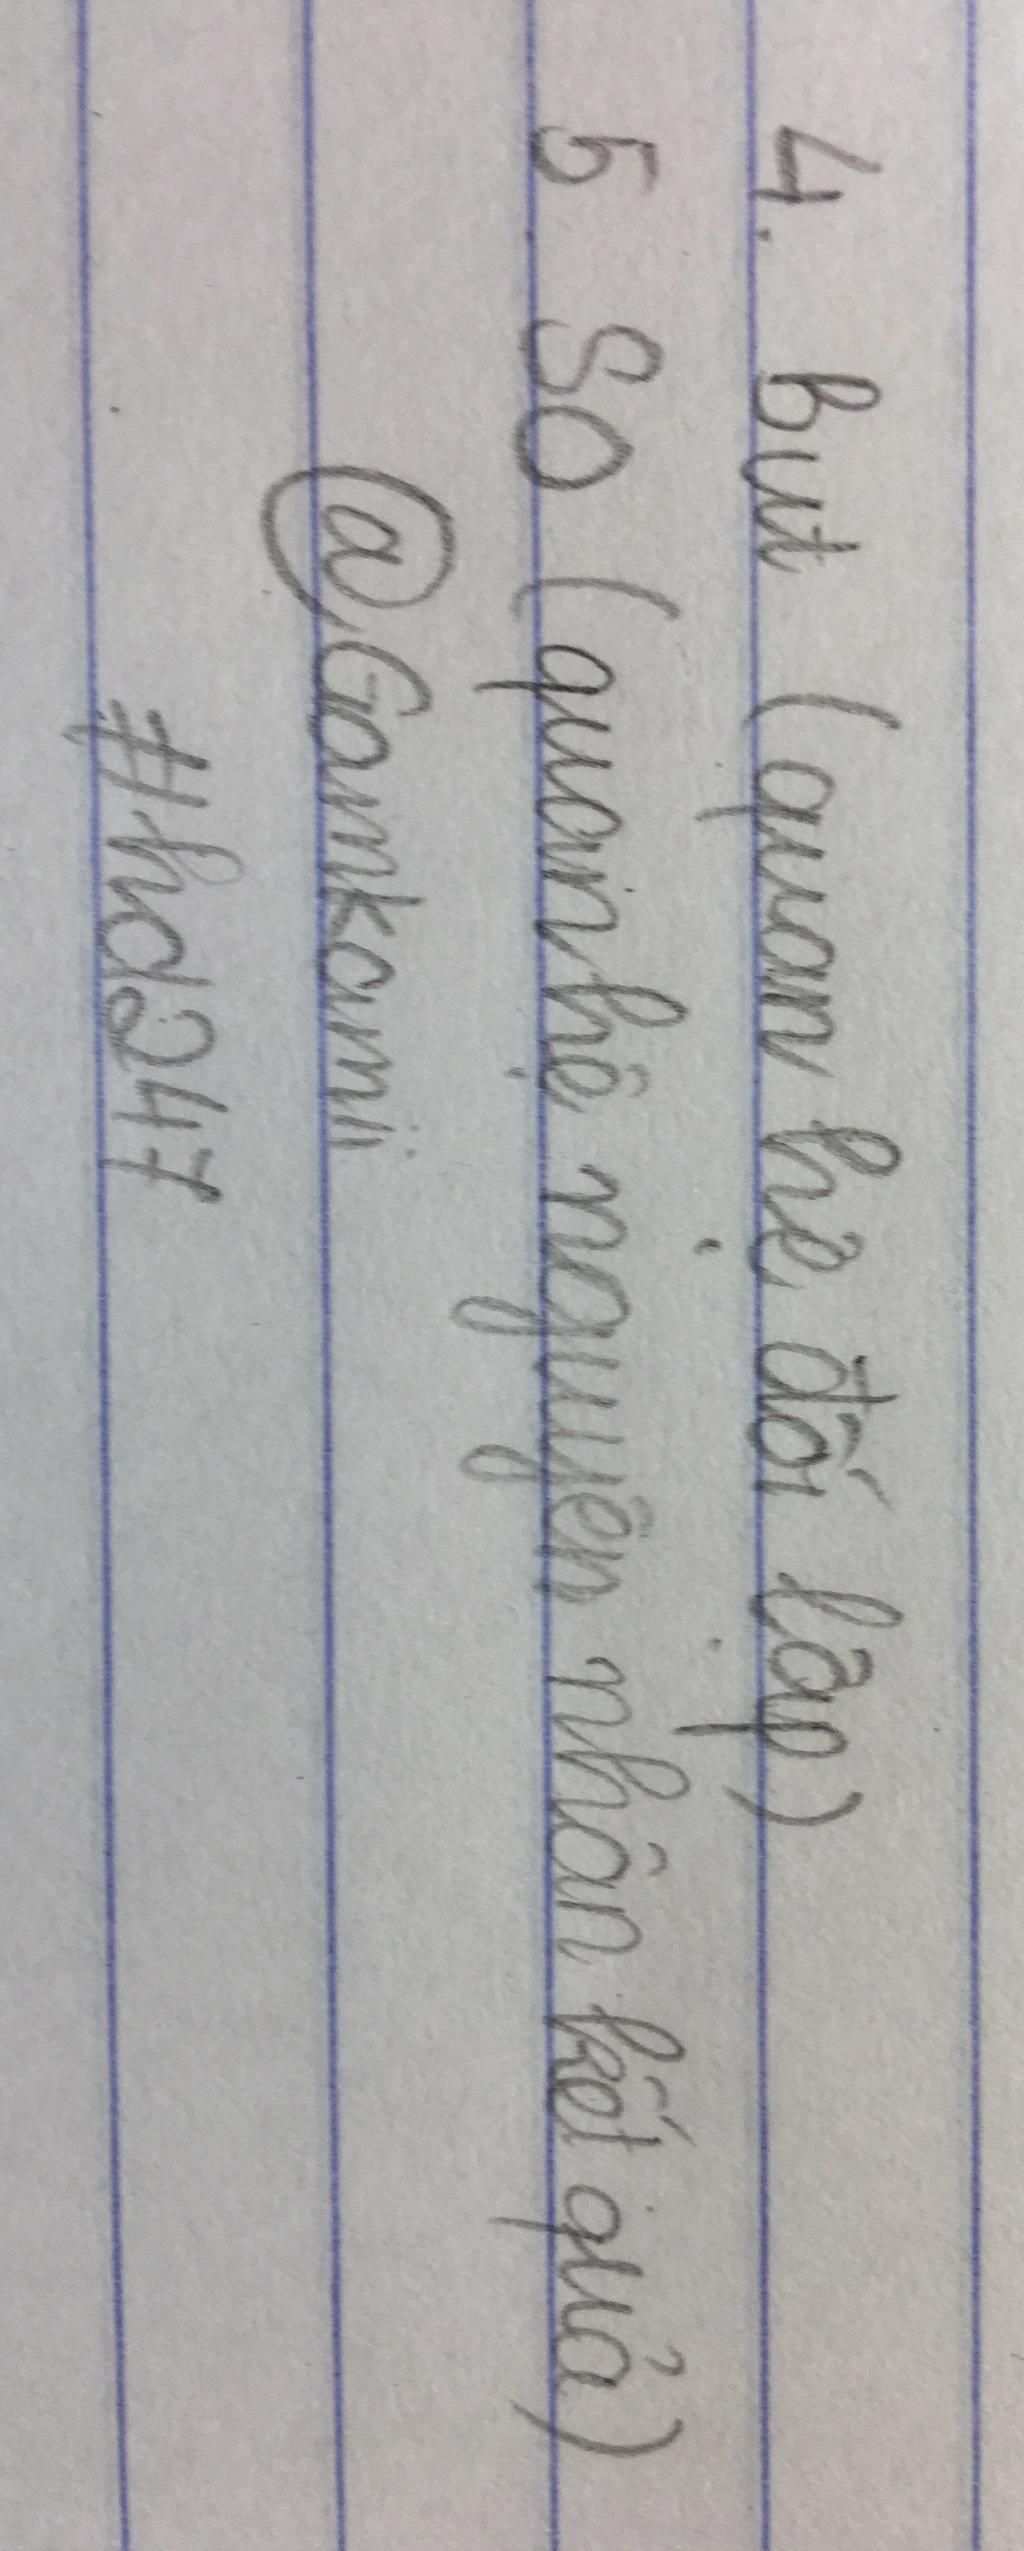 4. but (quan hệ đối lập)
5. So (quan hệ nguyên nhân kết quả)
@Gankamii
#hd247